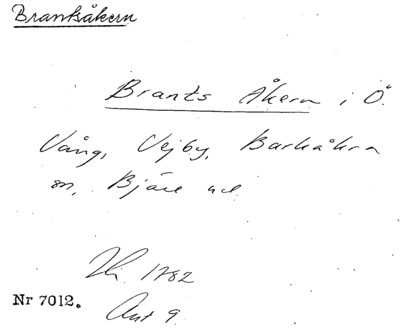 Brankåkern
Brants Åkern i Ö.
Vång, Vejby, Barkåkra
sn, Bjäre hd
1782
Nr 7012.
Akt 9